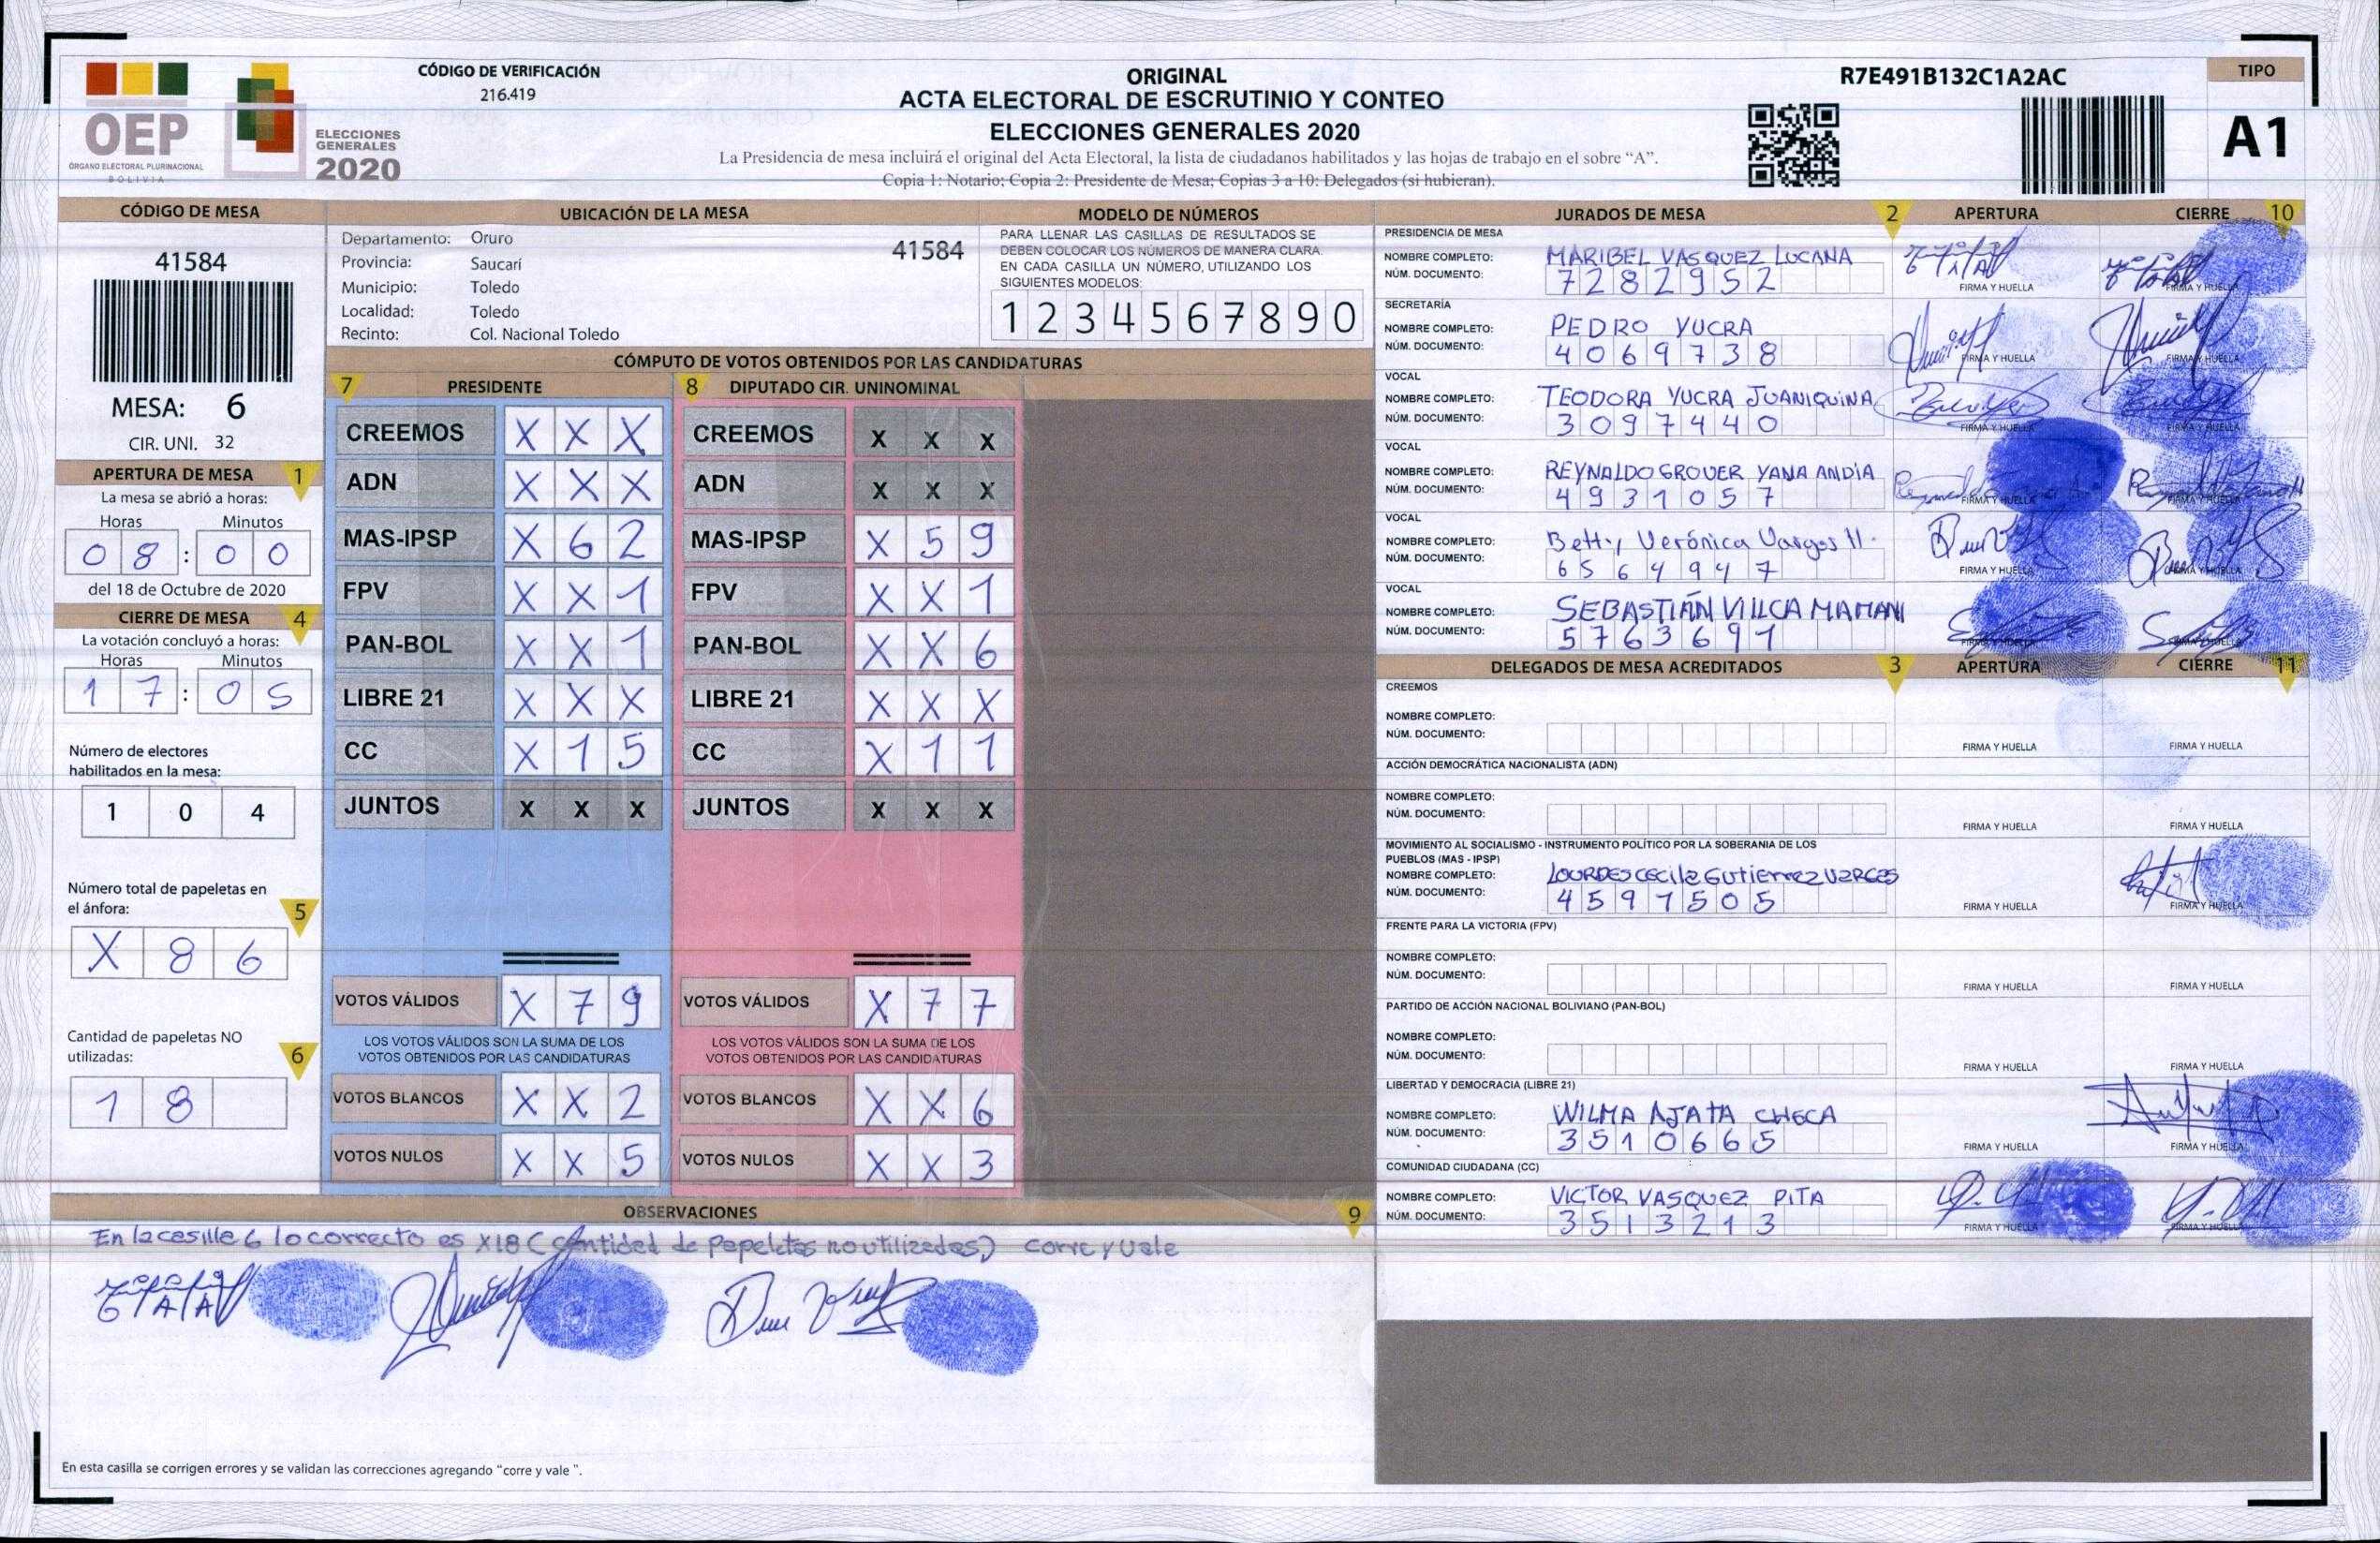 OEP
ÓRGANO ELECTORAL PLURINACIONAL
BOLIVIA
ELECCIONES
GENERALES
2020
CÓDIGO DE VERIFICACIÓN
216.419
ORIGINAL
ACTA ELECTORAL DE ESCRUTINIO Y CONTEO
ELECCIONES GENERALES 2020
La Presidencia de mesa incluirá el original del Acta Electoral, la lista de ciudadanos habilitados y las hojas de trabajo en el sobre “A”.
Copia 1: Notario; Copia 2: Presidente de Mesa; Copias 3 a 10: Delegados (si hubieran).
R7E491B132C1A2AC
TIPO
A1
CÓDIGO DE MESA
41584
MESA: 6
CIR. UNI. 32
APERTURA DE MESA 1
La mesa se abrió a horas:
Horas Minutos
0 8 : 0 0
del 18 de Octubre de 2020
CIERRE DE MESA 4
La votación concluyó a horas:
Horas Minutos
1 7 : 0 5
Número de electores
habilitados en la mesa:
1 0 4
Número total de papeletas en
el ánfora: 5
X 8 6
Cantidad de papeletas NO
utilizadas: 6
1 8
UBICACIÓN DE LA MESA
Departamento: Oruro 41584
Provincia: Saucarí
Municipio: Toledo
Localidad: Toledo
Recinto: Col. Nacional Toledo
MODELO DE NÚMEROS
PARA LLENAR LAS CASILLAS DE RESULTADOS SE
DEBEN COLOCAR LOS NÚMEROS DE MANERA CLARA.
EN CADA CASILLA UN NÚMERO, UTILIZANDO LOS
SIGUIENTES MODELOS:
1 2 3 4 5 6 7 8 9 0
CÓMPUTO DE VOTOS OBTENIDOS POR LAS CANDIDATURAS
7 PRESIDENTE 8 DIPUTADO CIR. UNINOMINAL
CREEMOS X X X CREEMOS X X X
ADN X X X ADN X X X
MAS-IPSP X 6 2 MAS-IPSP X 5 9
FPV X X 1 FPV X X 1
PAN-BOL X X 1 PAN-BOL X X 6
LIBRE 21 X X X LIBRE 21 X X X
CC X 1 5 CC X 1 1
JUNTOS X X X JUNTOS X X X
VOTOS VÁLIDOS X 7 9 VOTOS VÁLIDOS X 7 7
LOS VOTOS VÁLIDOS SON LA SUMA DE LOS LOS VOTOS VÁLIDOS SON LA SUMA DE LOS
VOTOS OBTENIDOS POR LAS CANDIDATURAS VOTOS OBTENIDOS POR LAS CANDIDATURAS
VOTOS BLANCOS X X 2 VOTOS BLANCOS X X 6
VOTOS NULOS X X 5 VOTOS NULOS X X 3
JURADOS DE MESA 2 APERTURA CIERRE 10
PRESIDENCIA DE MESA
NOMBRE COMPLETO: MARIBEL VASQUEZ LUCANA
NÚM. DOCUMENTO: 7282952
FIRMA Y HUELLA FIRMA Y HUELLA
SECRETARÍA
NOMBRE COMPLETO: PEDRO YUCRA
NÚM. DOCUMENTO: 4069738
FIRMA Y HUELLA FIRMA Y HUELLA
VOCAL
NOMBRE COMPLETO: TEODORA YUCRA JUANIQUINA
NÚM. DOCUMENTO: 3097440
FIRMA Y HUELLA FIRMA Y HUELLA
VOCAL
NOMBRE COMPLETO: REYNALDO GROVER YANA ANDIA
NÚM. DOCUMENTO: 4931057
FIRMA Y HUELLA FIRMA Y HUELLA
VOCAL
NOMBRE COMPLETO: Betty Verónica Vargas
NÚM. DOCUMENTO: 6564947
FIRMA Y HUELLA FIRMA Y HUELLA
VOCAL
NOMBRE COMPLETO: SEBASTIÁN VILLCA MAMANI
NÚM. DOCUMENTO: 5763691
DELEGADOS DE MESA ACREDITADOS 3 APERTURA CIERRE 11
CREEMOS
NOMBRE COMPLETO:
NÚM. DOCUMENTO:
FIRMA Y HUELLA FIRMA Y HUELLA
ACCIÓN DEMOCRÁTICA NACIONALISTA (ADN)
NOMBRE COMPLETO:
NÚM. DOCUMENTO:
FIRMA Y HUELLA FIRMA Y HUELLA
MOVIMIENTO AL SOCIALISMO - INSTRUMENTO POLÍTICO POR LA SOBERANIA DE LOS
PUEBLOS (MAS - IPSP)
NOMBRE COMPLETO: LOURDES CECILa GUtierrez VaRGas
NÚM. DOCUMENTO: 4597505
FIRMA Y HUELLA FIRMA Y HUELLA
FRENTE PARA LA VICTORIA (FPV)
NOMBRE COMPLETO:
NÚM. DOCUMENTO:
FIRMA Y HUELLA FIRMA Y HUELLA
PARTIDO DE ACCIÓN NACIONAL BOLIVIANO (PAN-BOL)
NOMBRE COMPLETO:
NÚM. DOCUMENTO:
FIRMA Y HUELLA FIRMA Y HUELLA
LIBERTAD Y DEMOCRACIA (LIBRE 21)
NOMBRE COMPLETO: WILMA AJATA CHECA
NÚM. DOCUMENTO: 3510665
FIRMA Y HUELLA FIRMA Y HUELLA
COMUNIDAD CIUDADANA (CC)
NOMBRE COMPLETO: VICTOR VASQUEZ PITA
NÚM. DOCUMENTO: 3513213
FIRMA Y HUELLA FIRMA Y HUELLA
OBSERVACIONES 9
En la casilla 6 lo correcto es X18 (cantidad de papeletas no utilizadas) corre y vale
En esta casilla se corrigen errores y se validan las correcciones agregando “corre y vale ”.